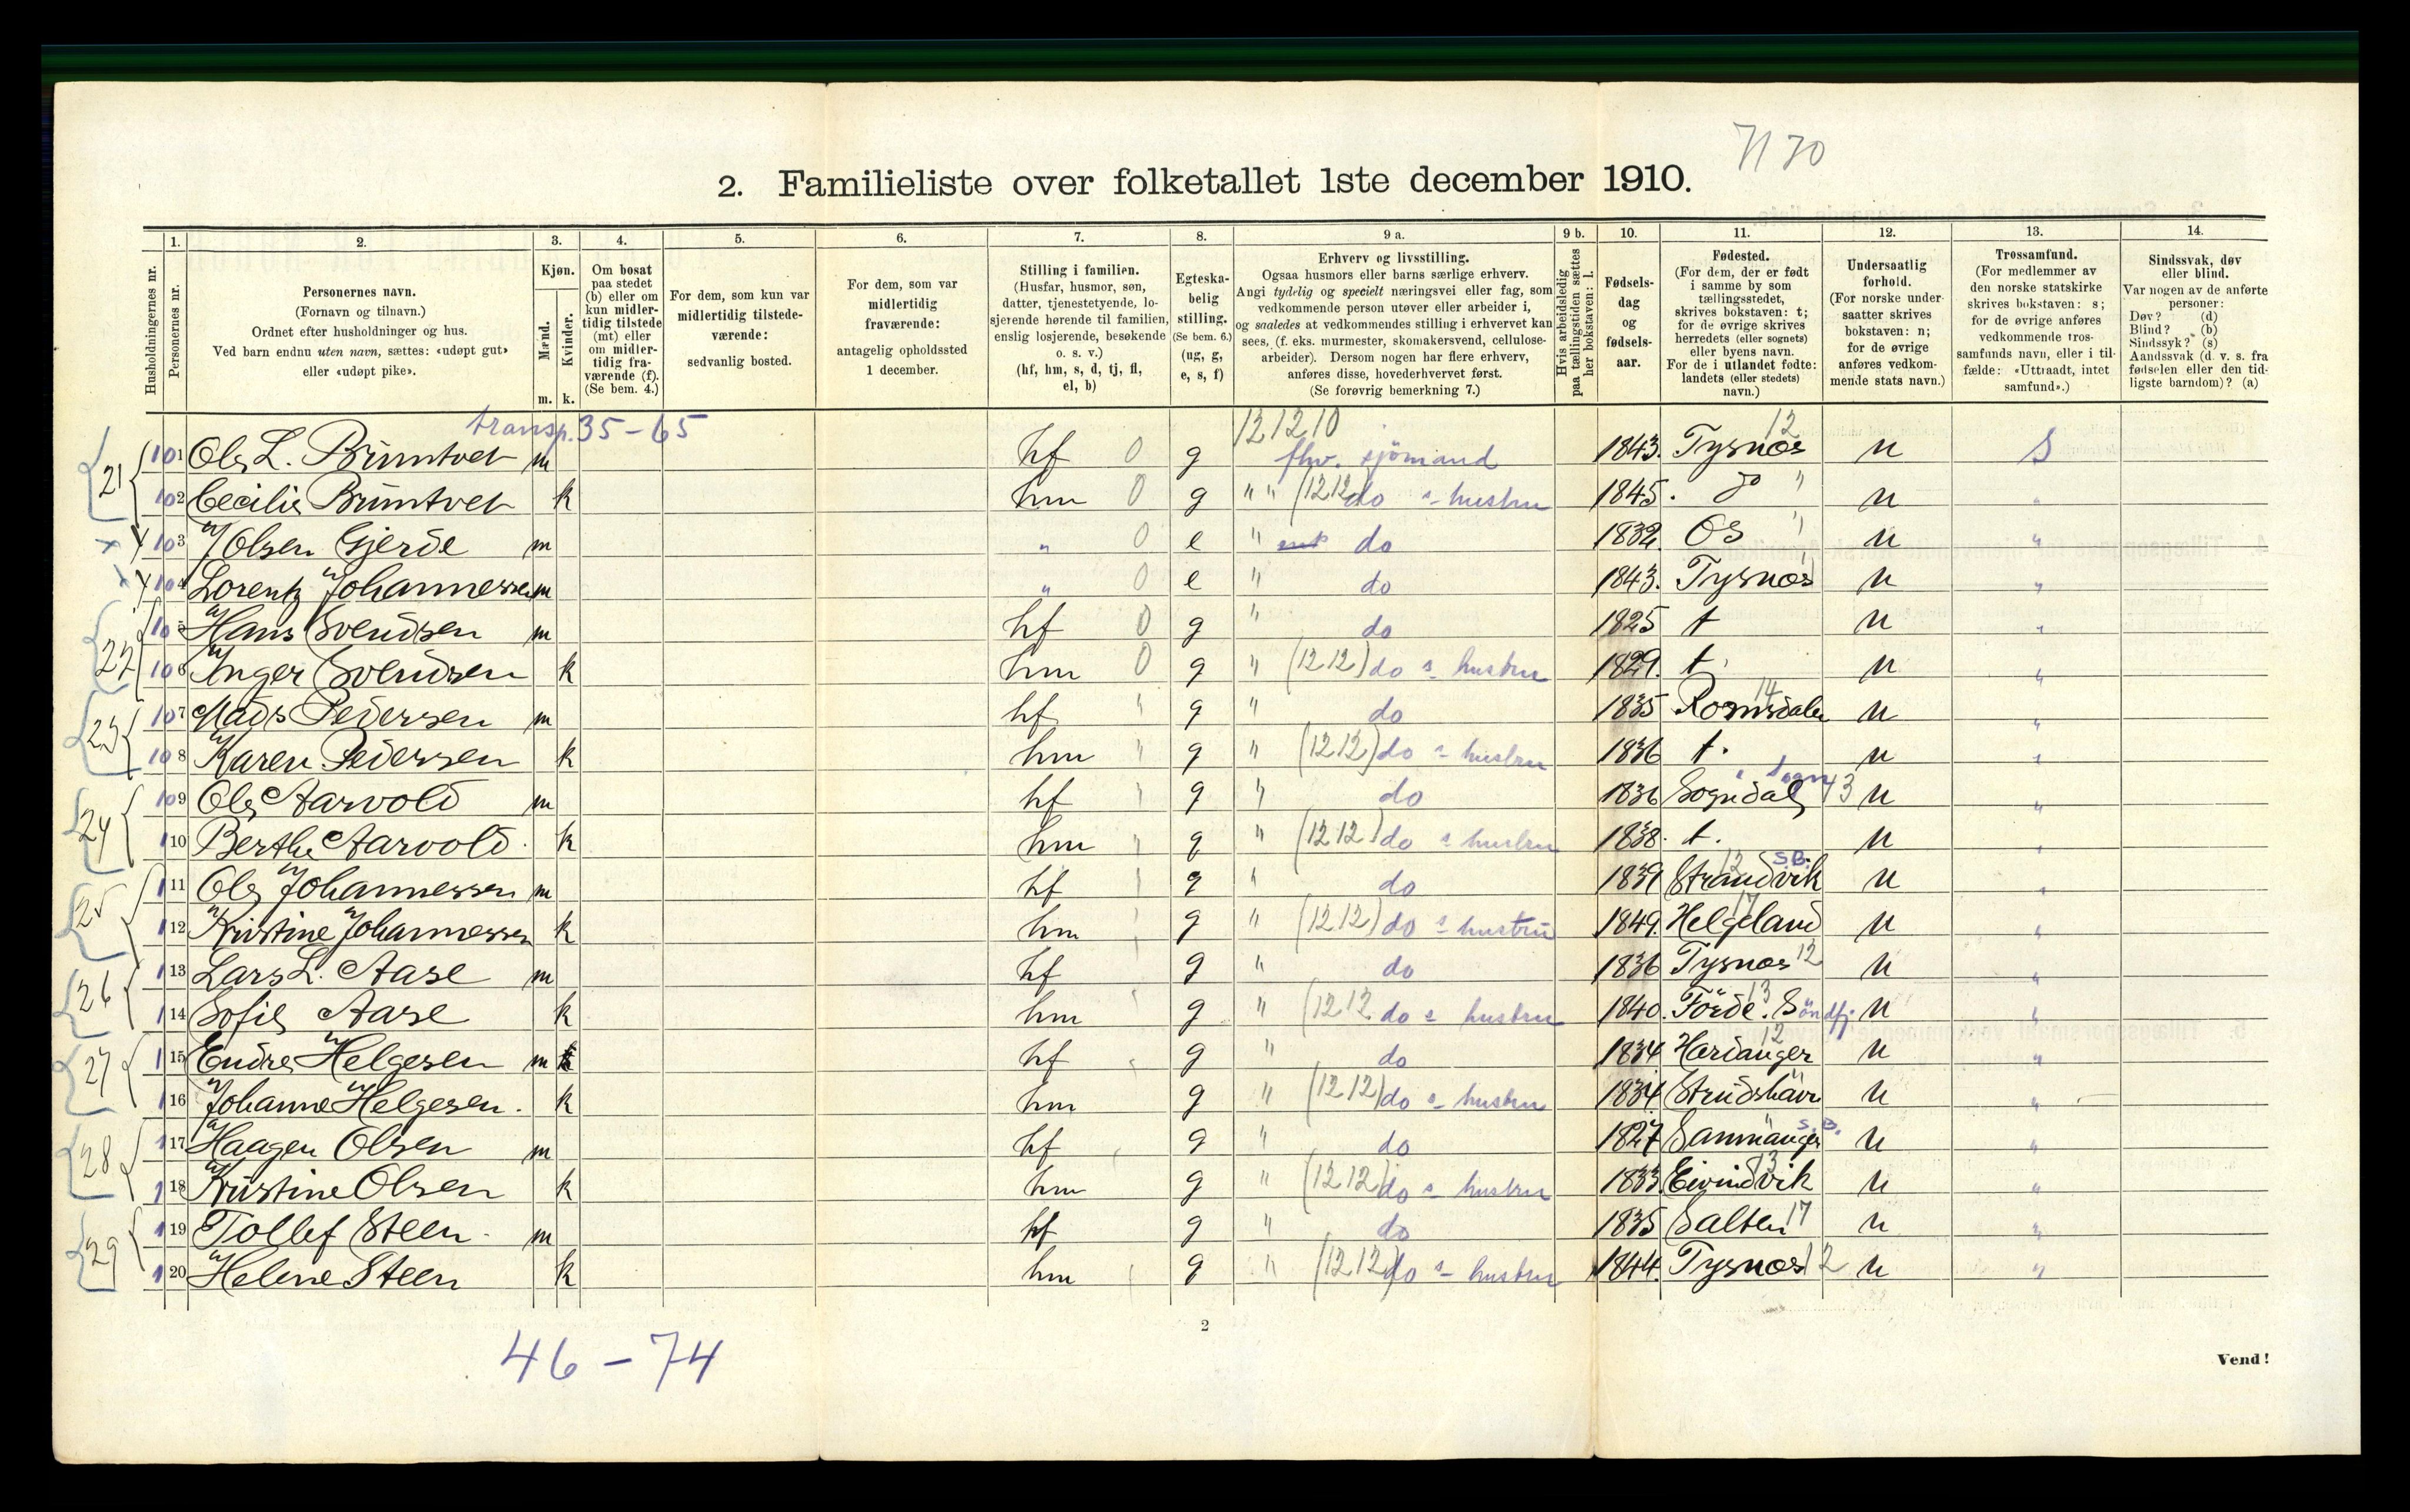 7130
2. Familieliste over folketallet 1ste december 1910.
1. 2. 3. 4. 5. 6. 7. 8. 9 a. 9 b. 10. 11. 12. 13. 14.
Husholdningernes nr.
Personernes nr.
Personernes navn.
(Fornavn og tilnavn.)
Ordnet efter husholdninger og hus.
Ved barn endnu uten navn, sættes: «udøpt gut»
eller «udøpt pike».
Kjøn.
Mænd.
Kvinder.
m. k.
Om bosat
paa stedet
(b) eller om
kun midler-
tidig tilstede
(mt) eller
om midler-
tidig fra-
værende (f).
(Se bem. 4.)
For dem, som kun var
midlertidig tilstede-
værende:
sedvanlig bosted.
For dem, som var
midlertidig
fraværende:
antagelig opholdssted
1 december.
Stilling i familien.
(Husfar, husmor, søn,
datter, tjenestetyende, lo-
sjerende hørende til familien,
enslig losjerende, besøkende
o. s. v.)
(hf, hm, s, d, tj, fl,
el, b)
Egteska-
belig
stilling.
(Se bem. 6.)
(ug, g,
e, s, f)
Erhverv og livsstilling.
Ogsaa husmors eller barns særlige erhverv.
Angi tydelig og specielt næringsvei eller fag, som
vedkommende person utøver eller arbeider i,
og saaledes at vedkommendes stilling i erhvervet kan
sees, (f. eks. murmester, skomakersvend, cellulose-
arbeider). Dersom nogen har flere erhverv,
anføres disse, hovederhvervet først.
(Se forøvrig bemerkning 7.)
Hvis arbeidsledig
paa tællingstiden sættes
her bokstaven: l.
Fødsels-
dag
og
fødsels-
aar.
Fødested.
(For dem, der er født
i samme by som
tællingsstedet,
skrives bokstaven: t;
for de øvrige skrives
herredets (eller sognets)
eller byens navn.
For de i utlandet fødte:
landets (eller stedets)
navn.)
Undersaatlig
forhold.
(For norske under-
saatter skrives
bokstaven: n;
for de øvrige
anføres vedkom-
mende stats navn.)
Trossamfund.
(For medlemmer av
den norske statskirke
skrives bokstaven: s;
for de øvrige anføres
vedkommende tros-
samfunds navn, eller i til-
fælde: «Uttraadt, intet
samfund».)
Sindssvak, døv
eller blind.
Var nogen av de anførte
personer:
Døv? (d)
Blind? (b)
Sindssyk? (s)
Aandssvak (d. v. s. fra
fødselen eller den tid-
ligste barndom)? (a)
transp. 35-65 121210 12
21 101 Ole L. Bruntvet m hf 0 g fhv. sjömand 1843. Tysnæs n S
102 Cecilie Bruntvet k hm 0 g " " (1212 do s hustru 1845. do " n "
x 103 Olsen Gjerde m " 0 e " do 1832. Os " n "
x 104 Lorentz Johannessen m " 0 e " do 1843. Tysnæs n "
22 105 Hans Svendsen m hf 0 g " do 1825 t n "
106 Inger Svendsen k hm 0 g " (1212) do s hustru 1829. t. n "
23 107 Mads Pedersen m hf " g " do 1835 Romsdalen 14 n "
108 Karen Pedersen k hm " g " (1212) do s hustru 1836 t. n "
24 109 Ole Aarvold m hf " g " do 1836 Sogndal i Sogn 13 n "
110 Berthe Aarvold. k hm " g " (1212) do s hustru 1838. t. n "
25 111 Ole Johannessen m hf g " do 1839 Strandvik 12 S.B. n "
112 Kristine Johannessen k hm g " (1212) do s hustru 1849. Helgeland 17 n "
26 113 Lars L. Aase m hf g " do 1836 Tysnæs 12 n "
114 Sofie Aase k hm g " (1212 do s hustru 1840. Förde. Söndfj. 13 n "
27 115 Endre Helgesen m hf g " do 1834 Hardanger 12 n "
116 Johanne Helgesen. k hm g " (1212) do s hustru 1834. n "
28 117 Haagen Olsen m hf g " do 1827 Samnanger S.B. n "
118 Kristine Olsen k hm g " (1212) do s hustru 1833. Eivindvik 13 n "
29 119 Tollef Steen m hf g " do 1835 Salten 17 n "
120 Helene Steen k hm g " (1212) do s hustru 1844. Tysnæs 12 n "
2
46-74
Vend!